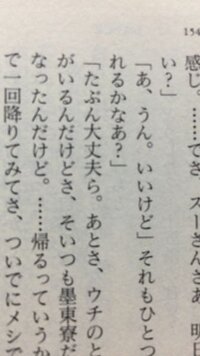 154
感じ。……でさ、スーさんさあ、明日
い？」
「あ、うん。いいけど」それもひとつ
れるかなあ？」
「たぶん大丈夫ら。あとさ、ウチのと
がいるんだけどさ、そいつも墨東寮だ
なったんだけど。……帰るっていうか
で一回降りてみてさ、ついでにメシで